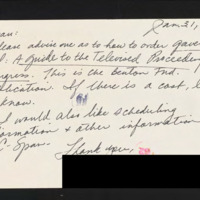 Jan 21,
ease advise me as to how to order gavel
A Guide to the Televised Proceedin
ngress. This is the Benton Fnd.
blication. If there is a cost, l
know.
I would also like scheduling
formation & other information
C-Span.
Thank you,